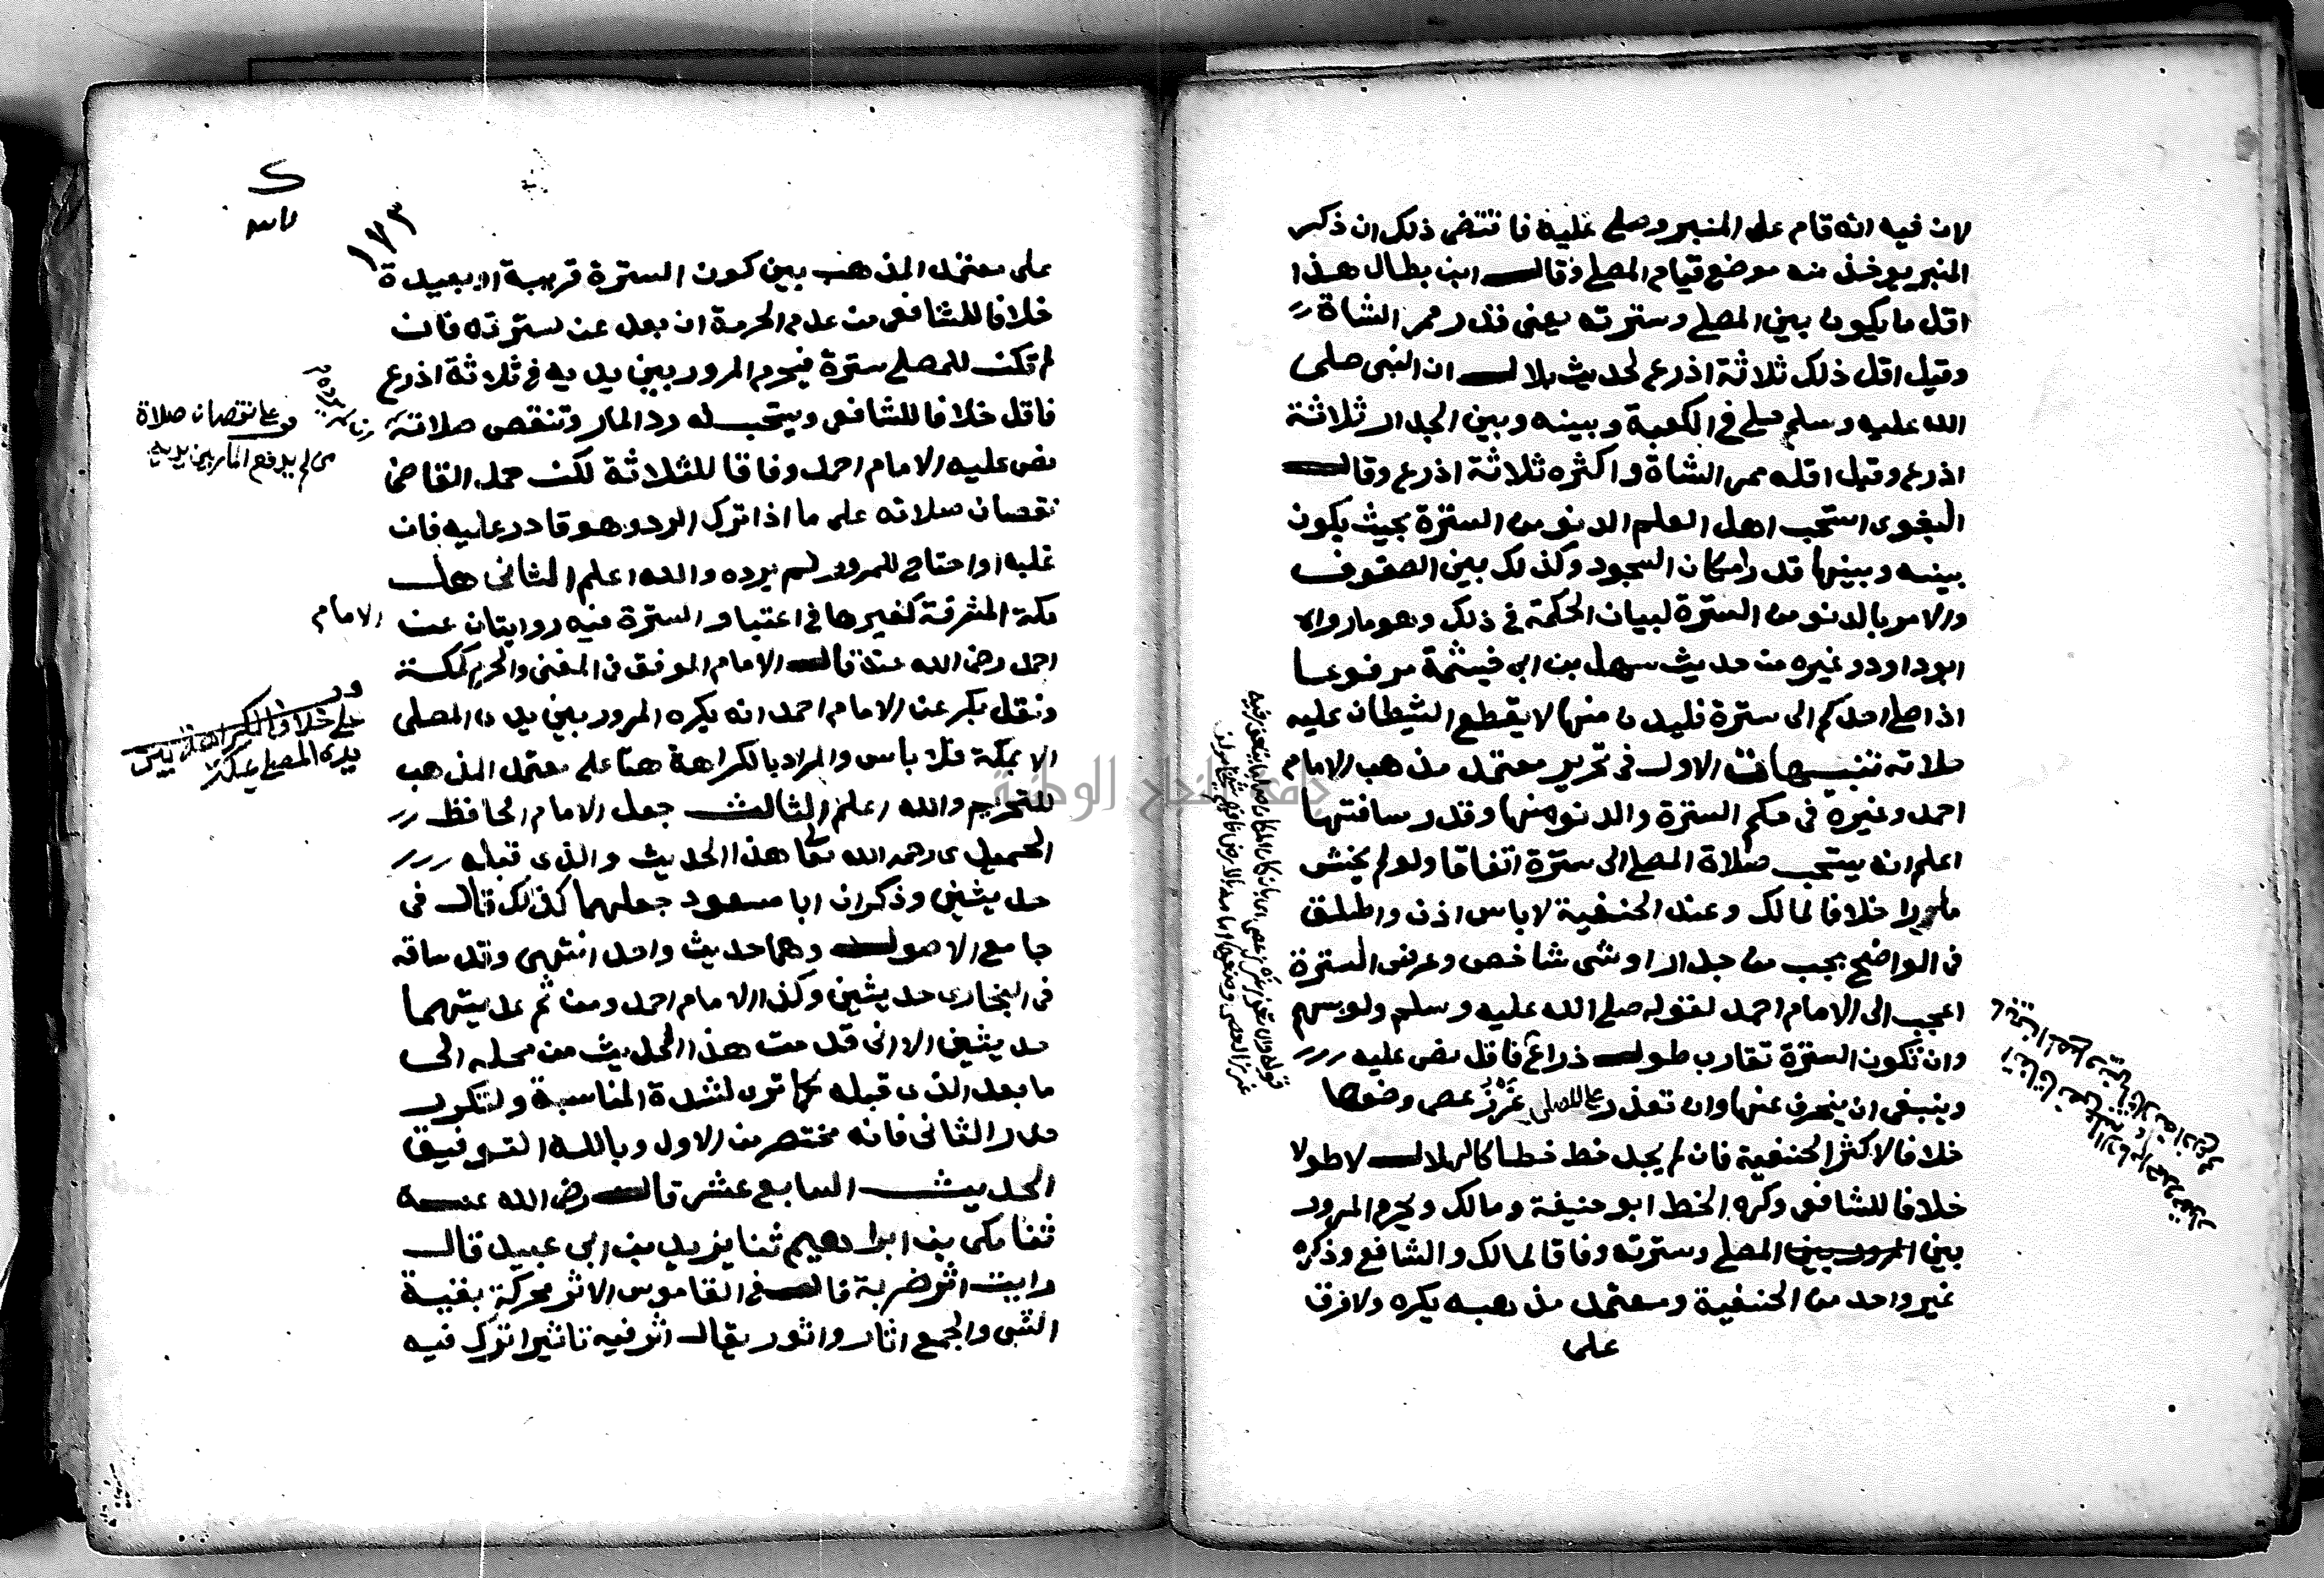 لان فيه انه قام على المنبر وصلى عليه فاقتضى ذلك ان ذكر
المنبر يوخذ منه موضع قيام المصلي وقال ابن بطال هذا
اقل ما يكون بين المصلي وسترته يعني قدر ممر الشاة
وقيل اقل ذلك ثلاثة اذرع لحديث بلال ان النبي صلى
الله عليه وسلم صلى في الكعبة وبينه وبين الجدار ثلاثة
اذرع وقيل اقله ممر الشاة واكثره ثلاثة اذرع وقال
البغوي استحب اهل العلم الدنو من السترة بحيث يكون
بينه وبينها قدر امكان السجود وكذلك بين الصفوف
والامر بالدنو من السترة لبيان الحكمة في ذلك وهو ما رواه
ابو داود وغيره من حديث سهل بن ابي خيثمة مرفوعا
اذا صلى احدكم الى سترة فليدن منها لا يقطع الشيطان عليه
صلاته تنبيهات الاول في تحرير معتمد مذهب الامام
احمد وغيره في حكم السترة والدنو منها وقدر مسافتها
اعلم انه يستحب صلاة المصلي الى سترة اتفاقا ولو لم يخش
مارا خلافا لمالك وعند الحنفية لا باس اذن واطلق
في الواضح يجب من جدار او شي شاخص وعرض السترة
اعجب الى الامام احمد لقوله صلى الله عليه وسلم ولو بسهم
وان تكون السترة تقارب طول ذراع فاقل نص عليه
وينبغي ان ينحرف عنها وان تعذر على المصلي غرز عصى وضعها
خلافا لاكثر الحنفية فان لم يجد خط خطا كالهلال لا طولا
خلافا للشافعي وكره الخط ابو حنيفة ومالك ويحرم المرور
بين المرور بين المصلي وسترته وفاقا لمالك والشافعي وذكره
غير واحد من الحنفية ومعتمد مذهبه يكره ولا فرق
على
١٧٣
على معتمد المذهب بين كون السترة قريبة او بعيدة
خلافا للشافعي من عدم الحرمة ان بعد عن سترته فان
لم تكن للمصلي سترة فيحرم المرور بين يديه في ثلاثة اذرع
فاقل خلافا للشافعي ويستحب له رد المار وتنقص صلاته
نص عليه الامام احمد وفاقا للثلاثة لكن حمل القاضي
نقصان صلاته على ما اذا ترك الرد وهو قادر عليه فان
غلبه او احتاج للمرور لم يرده والله اعلم الثاني هل
مكة المشرفة كغيرها في اعتبار السترة فيه روايتان عن
الامام
احمد رضي الله عنه قال الامام الموفق في المغني والحرم كمكة
ونقل بكر عن الامام احمد انه يكره المرور بين يدي المصلي
الا بمكة فلا باس والمراد بالكراهة هنا على معتمد المذهب
للتحريم والله اعلم الثالث جعل الامام الحافظ
الحميدي رحمه الله تعا هذا الحديث والذي قبله
حديثين وذكر ان ابا مسعود جعلهما كذلك قال في
جامع الاصول وهما حديث واحد انتهى وقد ساقه
في البخاري حديثين وكذا الامام احمد ومن ثم عديتهما
حديثين الا اني قدمت هذا الحديث من محله الى
ما بعد الذي قبله كما ترى لشدة المناسبة ولتكرر
صدر الثاني فانه مختصر من الاول وبالله التوفيق
الحديث السابع عشر قال رضي الله عنه
ثنا مكي بن ابراهيم ثنا يزيد بن ابي عبيد قال
رايت اثر ضربة قال في القاموس الاثر محركة بقية
الشي والجمع اثار واثور يقال اثر فيه تاثيرا ترك فيه
على نقصان صلاة
من لم يدفع المار بين يديه
جامعة النجاح الوطنية